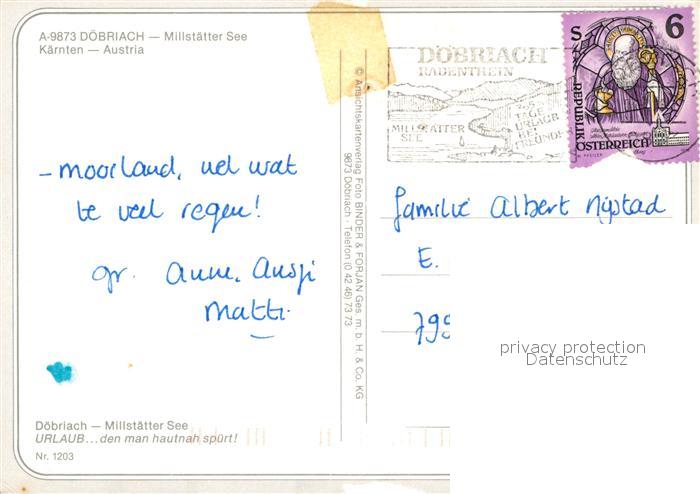 A-9873 DÖBRIACH — Millstätter See
Kärnten — Austria
– moorland, wel wat
te veel regen!
gr. Anne, Ansji
Matti.
Döbriach — Millstätter See
URLAUB... den man hautnah spürt!
Nr. 1203
© Ansichtskartenverlag Foto BINDER & FORJAN Ges. m. b. H. & Co. KG
9873 Döbriach · Telefon (0 42 46) 73 73
DÖBRIACH
RADENTHEIN
MILLSTÄTTER
SEE
TAGE
URLAUB
BEI
FREUNDEN
S 6
REPUBLIK
ÖSTERREICH
familie Albert Nijstad
E.
799
privacy protection
Datenschutz